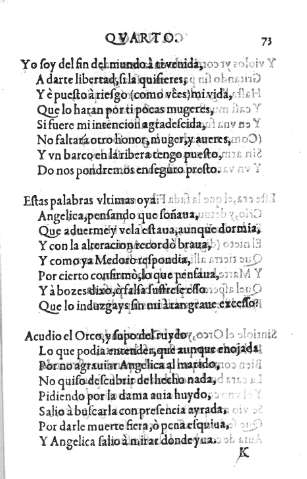 QVARTO. 73
Yo soy del fin del mundo à ti venida,
A darte libertad, si la quisieres,
Y è puesto à riesgo (como vèes) mi vida,
Que lo haran por ti pocas mugeres,
Si fuere mi intencion agradescida,
No faltarà otro honor, muger, y aueres,
Y vn barco en la ribera tengo puesto,
Do nos pondremos en seguro presto.
Estas palabras vltimas oya
Angelica, pensando que soñaua,
Que aduerme y vela estaua, aunque dormia,
Y con la alteracion recordò braua,
Y como ya Medoro respondia,
Por cierto confirmò, lo que pensaua,
Y à bozes dixo, ò falsa
Que lo induzgays sin mi à tan graue excesso?
Acudio el Orco, y supo del ruydo
Lo que podia entender, que aunque enojada
Por no agrauiar Angelica al marido,
No quiso descubrir del hecho nada,
Pidiendo por la dama auia huydo,
Salio à buscarla con presencia ayrada,
Por darle muerte fiera, ò pena esquiua,
Y Angelica salio à mirar donde yua.
K